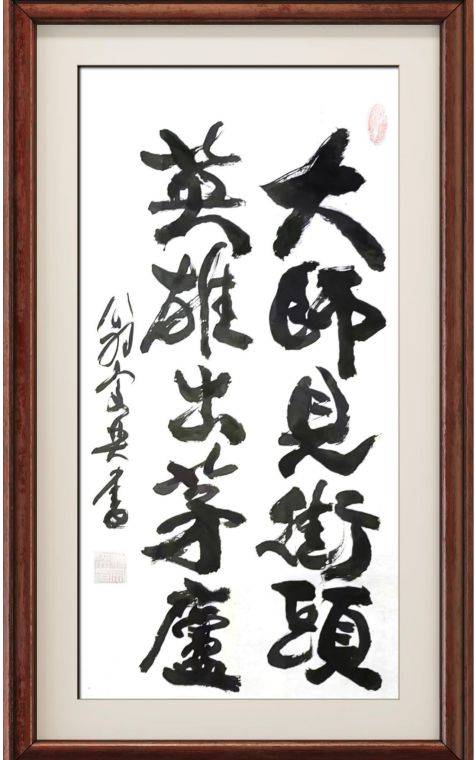 大師見街頭
英雄出茅廬